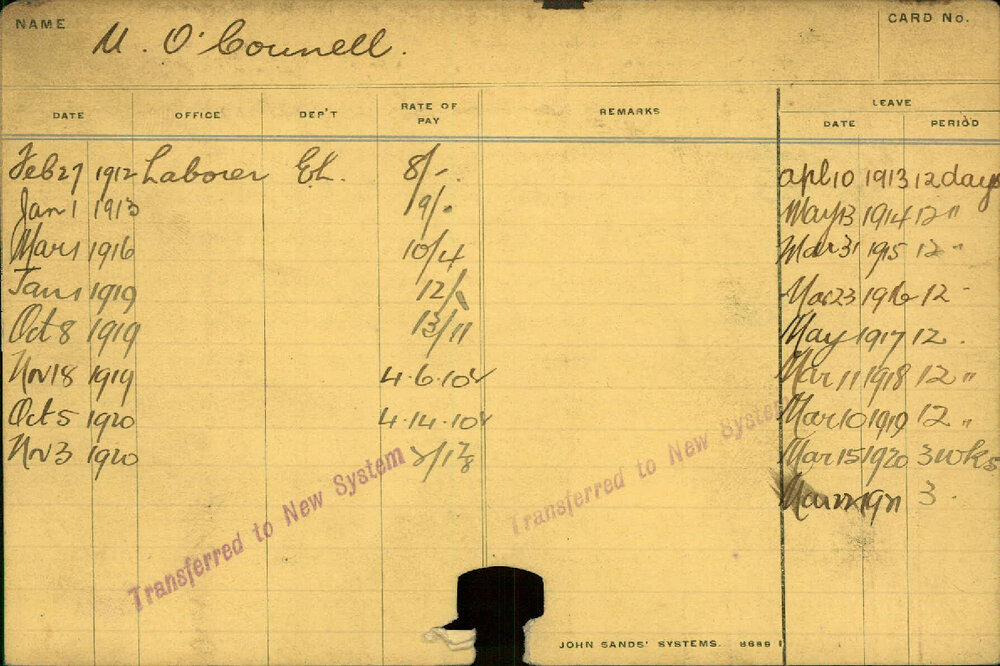 NAME M. O'Connell. CARD No.
LEAVE
DATE OFFICE DEP'T RATE OF PAY REMARKS DATE PERIOD
Feb 27 1912 Laborer E.L. 8/-. Apl 10 1913 12 days
Jan 1 1913 9/-. May 13 1914 12 "
Mar 1 1916 10/4 Mar 31 1915 12 "
Jan 1 1919 12/- Mar 23 1916 12 -
Oct 8 1919 13/11 May 1917 12 .
Nov 18 1919 4.6.10 Mar 11 1918 12 "
Oct 5 1920 4.14.10 Mar 10 1919 12 "
Nov 3 1920 Mar 15 1920 3 wks
Mar 1921 3 .
Transferred to New System
Transferred to New System
JOHN SANDS' SYSTEMS. 8689